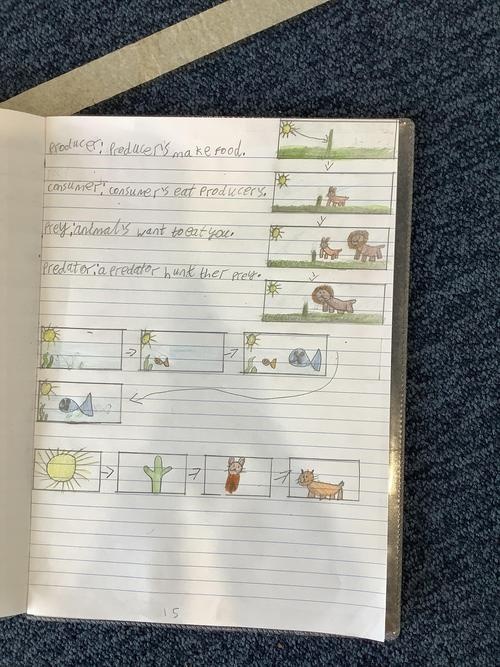 producer: producer's make food.
consumer: consumer's eat producers.
prey: animal's want to eat you.
Predator: a predator hunt ther prey.
15